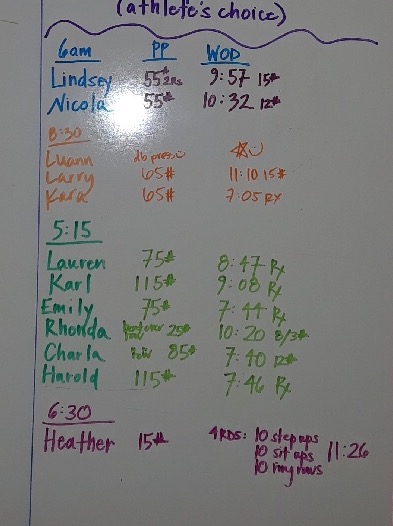 (athlete's choice)
6am PP WOD
Lindsey 55# 2Rs 9:57 15#
Nicola 55# 10:32 12#
8:30
Luann db press
Larry 65# 11:10 15#
Kara 65# 7:05 RX
5:15
Lauren 75# 8:47 Rx
Karl 115# 9:08 Rx
Emily 75# 7:44 Rx
Rhonda bent over row 25# 10:20 8/3#
Charla 85# 7:40 12#
Harold 115# 7:46 Rx
6:30
Heather 15# 4RDS: 10 step ups
10 sit ups 11:26
10 ring rows